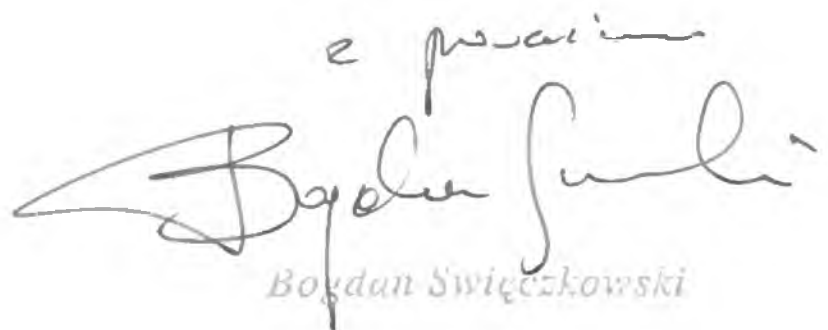 z poważaniem
Bogdan Święczkowski
Bogdan Święczkowski